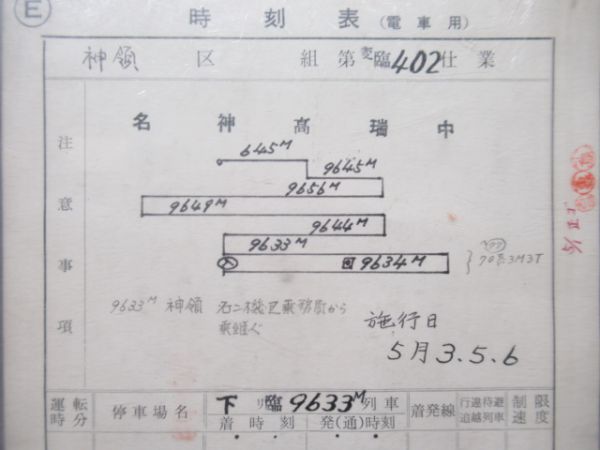 E
時刻表(電車用)
神領 区 組 第 変臨402 仕業
注意事項
名 神 高 瑞 中
645M
9645M
9656M
9649M
9644M
9633M
9634M
3M3T
9633M 神領 名二機区乗務員から
乗継ぐ
施行日
5月3.5.6
運転時分 停車場名 下り臨9633M列車 着発線 行違待避 制限
追越列車 速度
着時刻 発(通)時刻